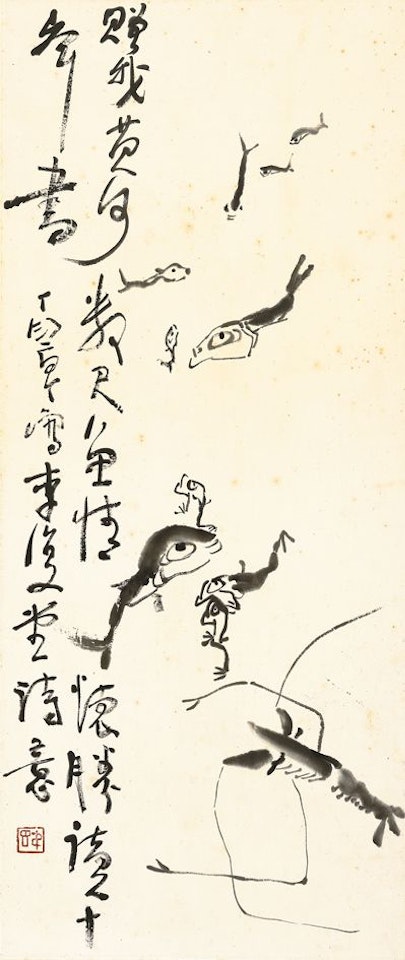 贈我黄河數尺魚情懷勝讀十
年書
丁寫李復堂詩意